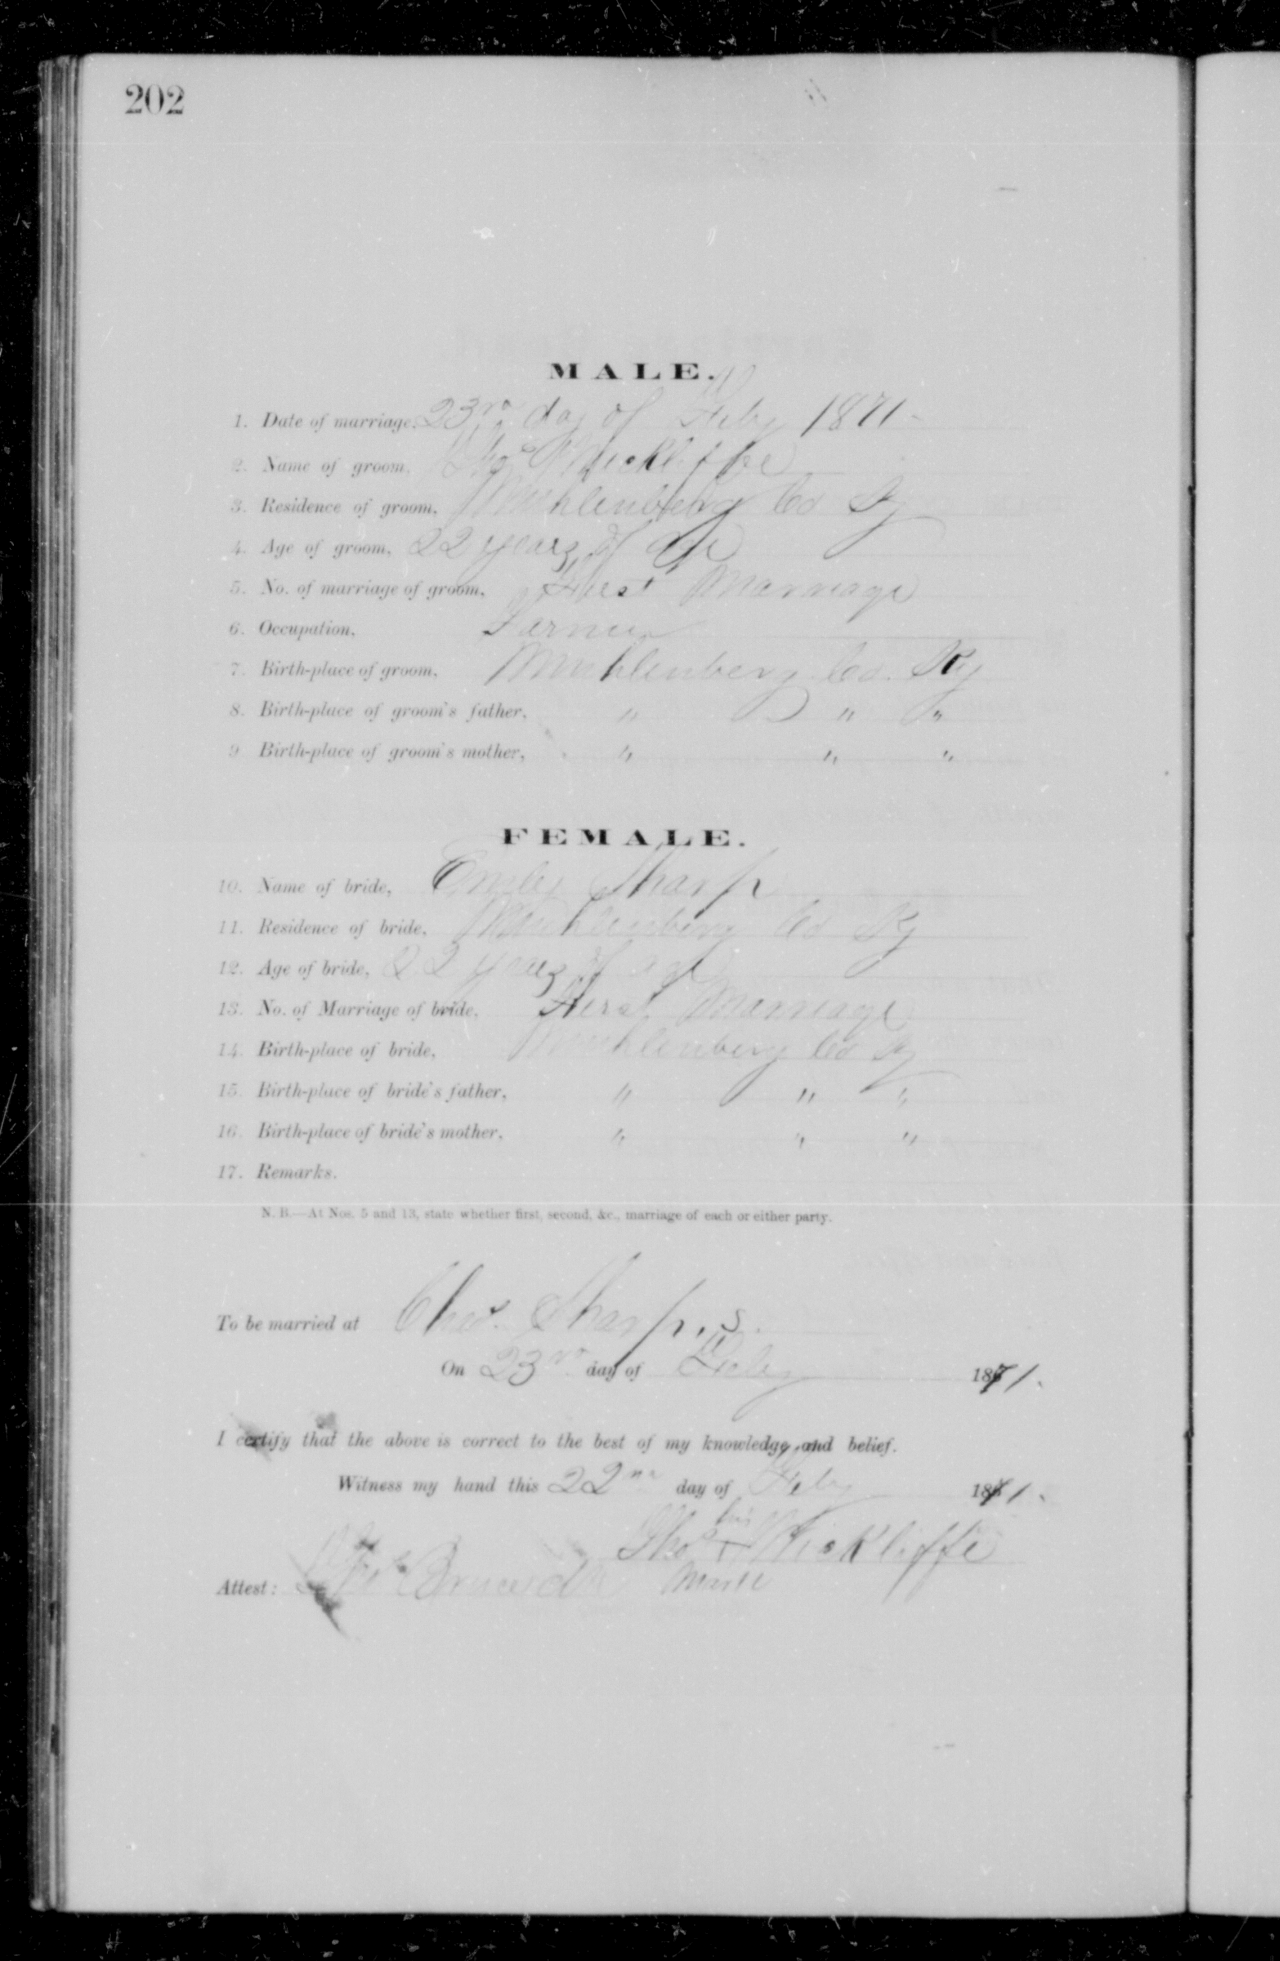 202
MALE.
1. Date of marriage, 23rd day of Feby 1871-
2. Name of groom, Thos Wickliffe
3. Residence of groom, Muhlenberg Co Ky
4. Age of groom, 22 years of age
5. No. of marriage of groom, First Marriage
6. Occupation, Farmer
7. Birth-place of groom, Muhlenberg Co. Ky
8. Birth-place of groom's father, " " "
9 Birth-place of groom's mother, " " "
FEMALE.
10. Name of bride, Emily Sharp
11. Residence of bride, Muhlenberg Co Ky
12. Age of bride, 22 years of age
13. No. of Marriage of bride, First Marriage
14. Birth-place of bride, Muhlenberg Co Ky
15. Birth-place of bride's father, " " "
16. Birth-place of bride's mother, " " "
17. Remarks.
N. B.—At Nos. 5 and 13, state whether first, second, &c., marriage of each or either party.
To be married at Chas. Sharp,s.
On 23rd day of Feby 1871.
I certify that the above is correct to the best of my knowledge and belief.
Witness my hand this 22nd day of Feby 1871.
his
Thos + Wickliffe
Attest: mark